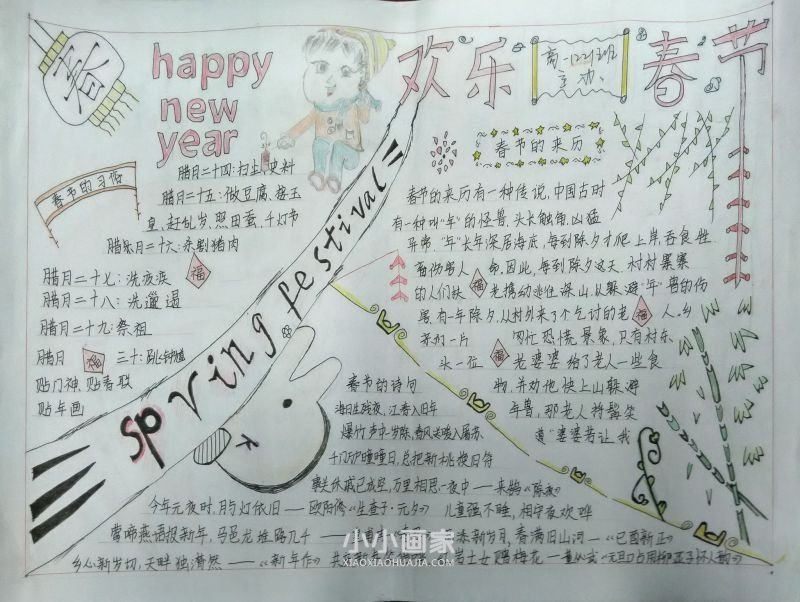 春
happy
new
year
欢乐春节
高一122班
主办
春节的习俗
腊月二十四:扫尘
腊月二十五:做豆腐、接玉
皇、赶乱岁、照田蚕、千灯节
腊月二十六:杀割猪肉
腊月二十七:洗疚疾
腊月二十八:洗邋遢
腊月二十九:祭祖
腊月三十:跳钟馗
贴门神、贴春联
贴年画
福
福
spring festival
春节的来历
春节的来历有一种传说,中国古时
有一种叫"年"的怪兽,头长触角,凶猛
异常,"年"长年深居海底,每到除夕才爬上岸,吞食牲
畜伤害人命,因此,每到除夕这天,村村寨寨
的人们扶老携幼逃往深山,以躲避"年"兽的伤
害,有一年除夕,从村外来了个乞讨的老人,乡
亲们一片匆忙恐慌景象,只有村东
头一位老婆婆给了老人一些食
物,并劝他快上山躲避
年兽,那老人捋髯笑
道"婆婆若让我
福
福
福
春节的诗句
海日生残夜,江春入旧年
爆竹声中一岁除,春风送暖入屠苏
千门万户曈曈日,总把新桃换旧符
事关休戚已成空,万里相思一夜中——来鹄《除夜》
今年元夜时,月与灯依旧——欧阳修《生查子·元夕》 儿童强不睡,相守夜欢哗
添新岁月,春满旧山河——《已酉新正》
乡心新岁切,天畔独潸然——《新年作》
小小画家
XIAOXIAOHUAJIA.COM